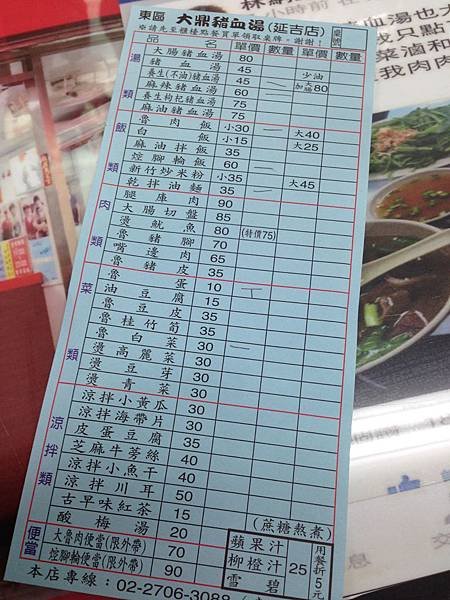 東區 大鼎豬血湯(延吉店) 桌號
※請先至櫃檯點餐買單領取桌牌。謝謝!
品名 單價 數量 單價 數量
湯類
大腸豬血湯 80
豬血湯 45 少油
養生(不油)豬血湯 45
麻辣豬血湯 60 80
養生枸杞豬血湯 75
麻油豬血湯 75
飯類
魯肉飯 小30 大40
白飯 小15 大25
麻油拌飯 35
焢腳輪飯 60
新竹炒米粉 小35 大45
乾拌油麵 35
肉類
腿庫肉 90
大腸切盤 85
燙魷魚 80 (特價75)
魯豬腳 70
嘴邊肉 65
魯豬皮 35
菜類
魯蛋 10
油豆腐 15
魯豆皮 35
魯桂竹筍 35
魯白菜 30
燙高麗菜 30
燙豆芽 30
燙青菜 30
涼拌類
涼拌小黃瓜 30
涼拌海帶片 30
皮蛋豆腐 35
芝麻牛蒡絲 40
涼拌小魚干 40
涼拌川耳 50
古早味紅茶 15 (蔗糖熬煮)
酸梅湯 20
便當
大魯肉便當(限外帶) 70
焢腳輪便當(限外帶) 90
蘋果汁
柳橙汁 25
雪碧
用餐折5元
本店專線:02-2706-3088
血湯也大
我只點
菜滷和
我肉肉